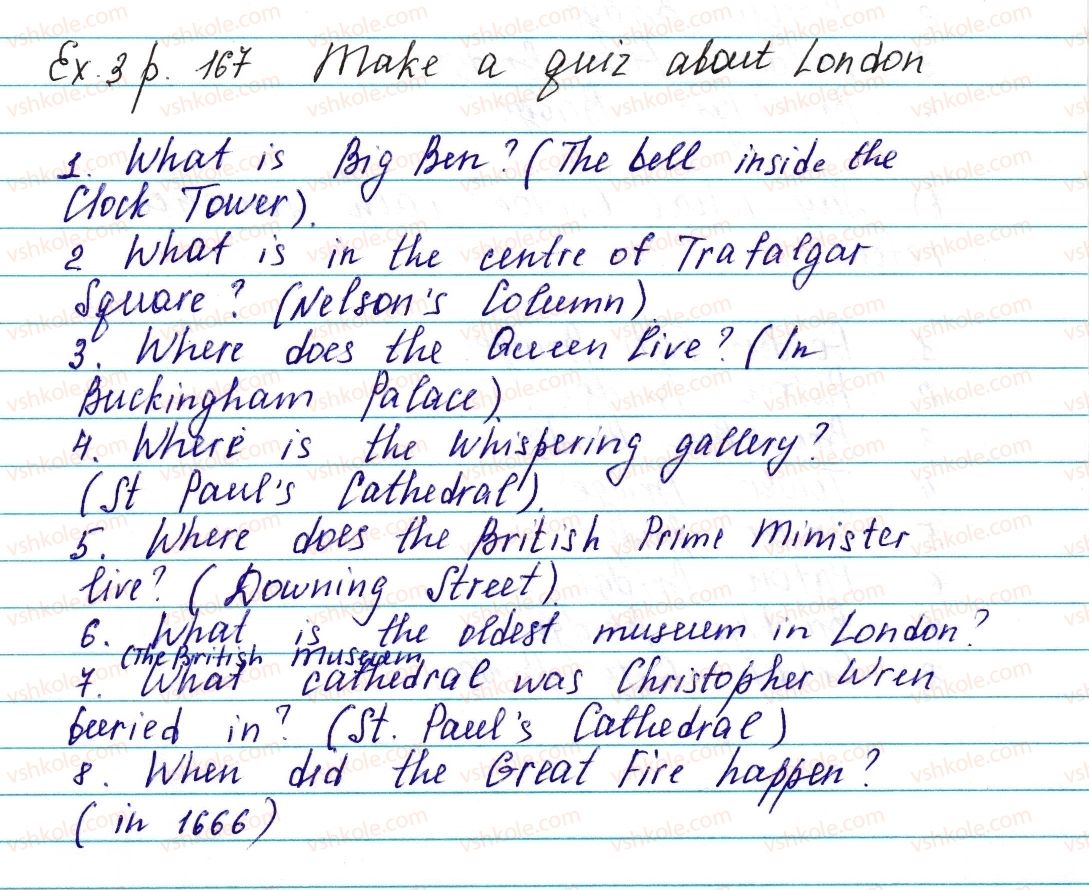 Ex. 3 p. 167 Make a quiz about London
1. What is Big Ben? (The bell inside the
Clock Tower).
2 What is in the centre of Trafalgar
Square? (Nelson's Column)
3. Where does the Queen live? (In
Buckingham Palace)
4. Where is the whispering gallery?
(St Paul's Cathedral).
5. Where does the British Prime Minister
live? (Downing Street).
6. What is the oldest museum in London?
(The British museum)
7. What cathedral was Christopher Wren
buried in? (St. Paul's Cathedral)
8. When did the Great Fire happen?
(in 1666)
vshkole.com